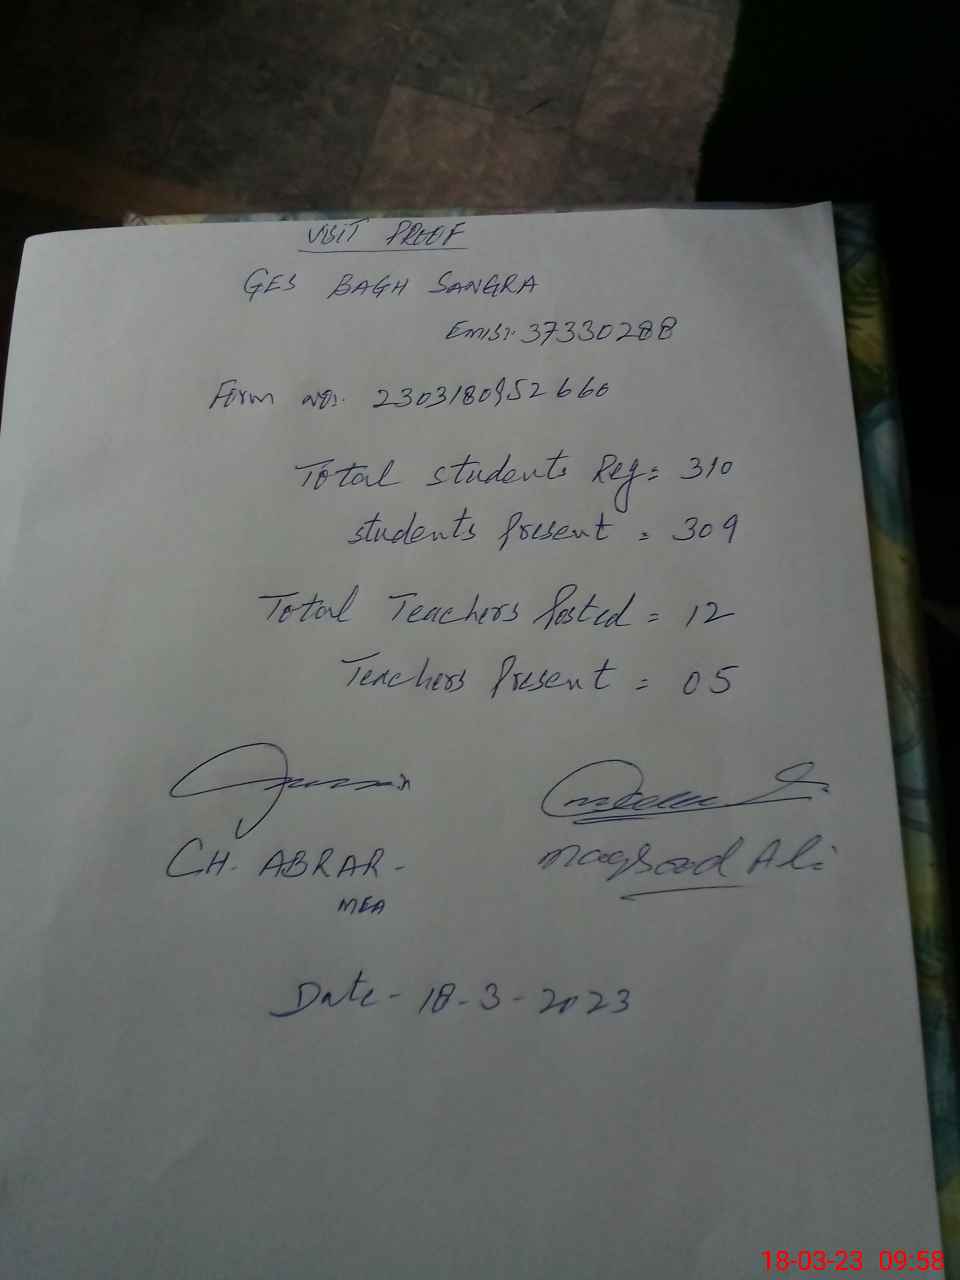 VISIT PROOF
GES BAGH SANGRA
EMIS:- 37330288
Form no:- 2303180952660
Total students Reg = 310
students Present = 309
Total Teachers Posted = 12
Teachers Present = 05
CH. ABRAR -
MEA
Maqsood Ali
Date - 18-3-2023
18-03-23 09:58